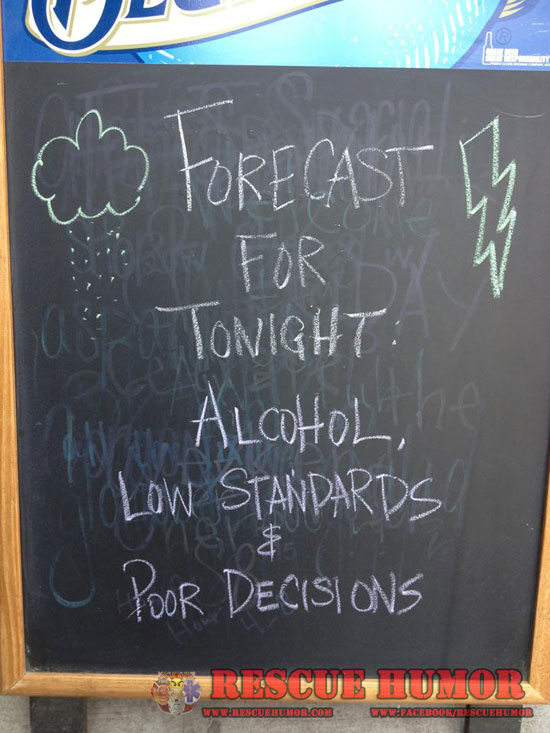 GREAT BEER
GREAT RESPONSIBILITY
FORECAST
FOR
TONIGHT:
ALCOHOL,
LOW STANDARDS
&
POOR DECISIONS
RESCUE HUMOR
WWW.RESCUEHUMOR.COM WWW.FACEBOOK/RESCUEHUMOR